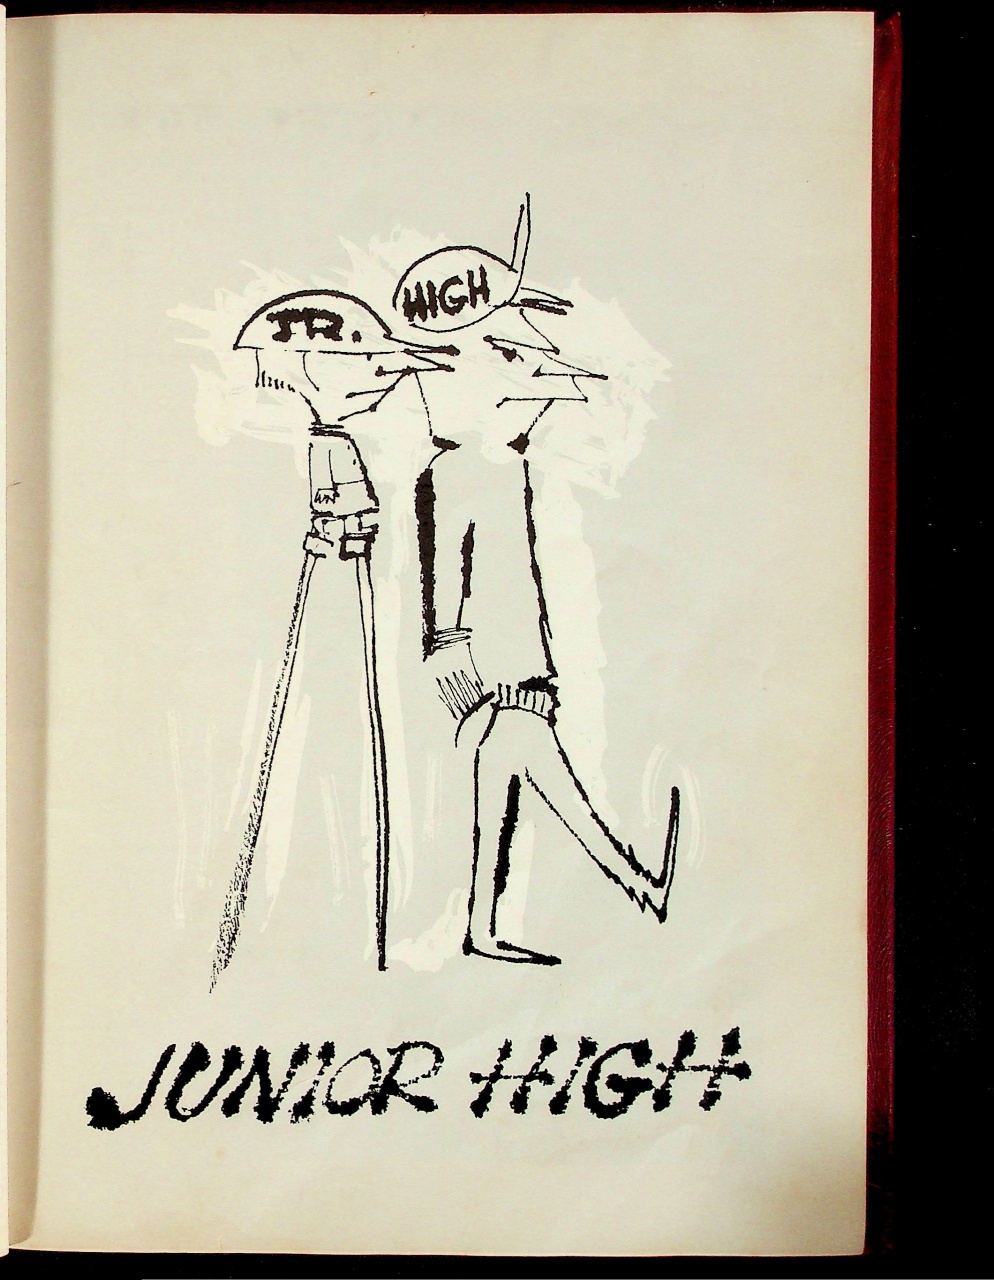 JR.
HIGH
JUNIOR HIGH